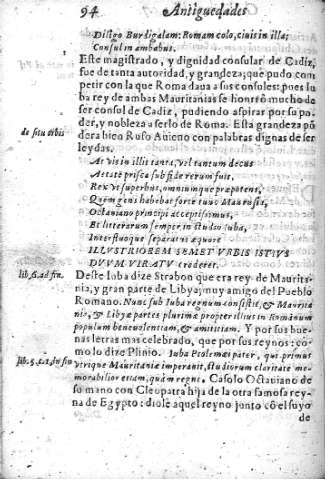 94 Antiguedades
Diligo Burdigalam: Romam colo, ciuis in illa;
Consul in ambabus.
Este magistrado, y dignidad consular de Cadiz,
fue de tanta autoridad, y grandeza; que pudo com
petir con la que Roma daua a sus consules: pues Iu
ba rey de ambas Mauritanias se honrró mucho de
ser consul de Cadiz, pudiendo aspirar por su po-
der, y nobleza a serlo de Roma. Esta grandeza pō
de situ orbis
dera bien Rufo Auieno con palabras dignas de ser
leydas.
At vis in illis tanta, vel tantum decus
Aetate prisca sub fide rerum fuit,
Rex vt superbus, omniumque præpotens,
Quem gens habebat forte tunc Maurusia,
Octauiano principi acceptissimus,
Et litterarum semper in studio Iuba,
Interfluoque separatus æquore
ILLVSTRIOREM SEMET VRBIS ISTIVS
DVVMVIRATV crederet.
lib. 6. ad fin.
Deste Iuba dize Strabon que era rey de Maurita-
nia, y gran parte de Libya; muy amigo del Pueblo
Romano. Nunc sub Iuba regnum consistit, & Maurita
nia, & Libyæ partes plurimæ propter illius in Romanum
populum beneuolentiam, & amititiam. Y por sus bue
nas letras mas celebrado, que por sus reynos: co-
mo lo dize Plinio. Iuba Ptolemei pater, qui primus
lib. 5. c. 1. in fin
vtrique Mauritaniæ imperauit, studiorum claritate me-
morabilior etiam, quàm regno. Casolo Octauiano de
su mano con Cleopatra hija de la otra famosa rey-
na de Egypto: diole aquel reyno junto cō el suyo
de